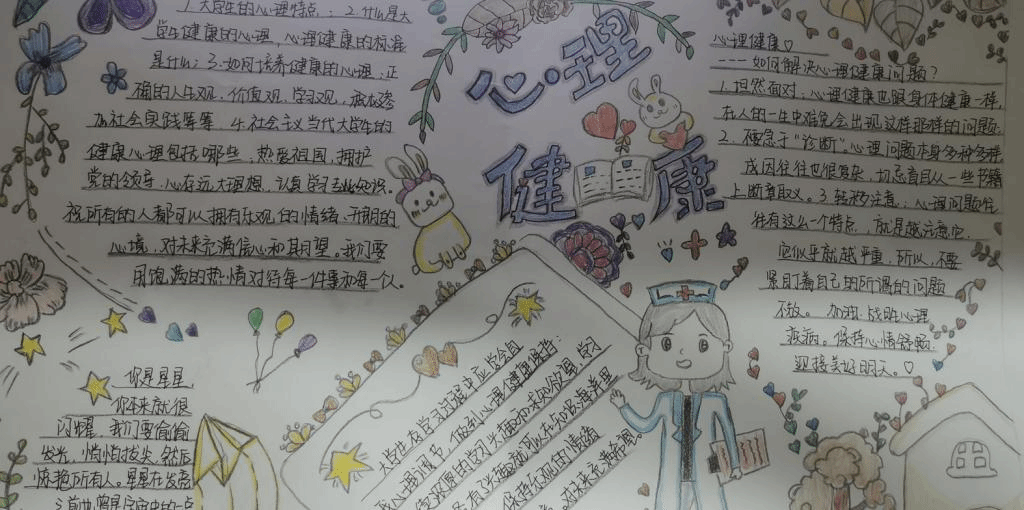 1.大学生的心理特点；2.什么是大
学生健康的心理，心理健康的标准
是什么；3.如何培养健康的心理，正
确的人生观，价值观，学习观，
社会实践等等。4.社会主义当代大学生的
健康心理包括哪些：热爱祖国，拥护
党的领导，心存远大理想，认真学习专业知识。
祝所有的人都可以拥有乐观的情绪、开朗的
心境，对未来充满信心和期望。我们要
用饱满的热情对待每一件事和每一个人。
心理
健康
心理健康♡
----如何解决心理健康问题？
1.坦然面对：心理健康也跟身体健康一样，
在人的一生中难免会出现这样那样的问题.
2.不要急于“诊断”，心理问题本身多种多样，
成因往往也很复杂，切忌盲目从一些书籍
上断章取义。3.转移注意：心理问题往
往有这么一个特点，就是越注意它，
它似乎就越严重，所以，不要
紧盯着自己的所谓的问题
不放。加油，战胜心理
疾病。保持心情舒畅.
迎接美好明天。♡
你是星星
你本来就很
闪耀，我们要偷偷
发光，悄悄拔尖，然后
惊艳所有人。星星在发光
之前也曾是宇宙中的一点
大学生在学习过程中应学会自
我心理调节，做到心理健康保持：
保持乐观的情绪
对未来充满希望。